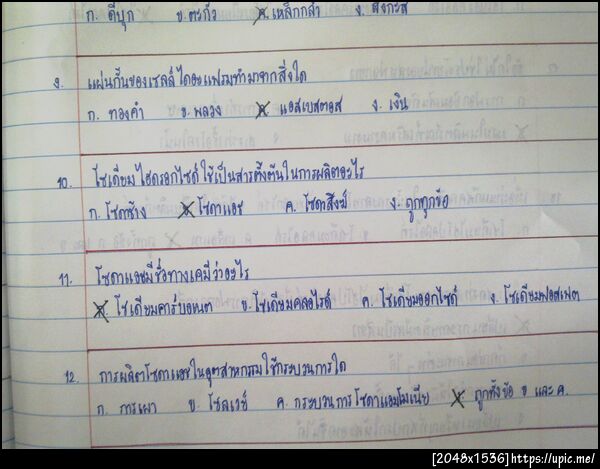 ก. ดีบุก ข. ตะกั่ว ค. เหล็กกล้า ง. สังกะสี
9. แผ่นกั้นของเซลล์ไดอะแฟรมทำมาจากสิ่งใด
ก. ทองคำ ข. พลวง ค. แอสเบสตอส ง. เงิน
10. โซเดียมไฮดรอกไซด์ใช้เป็นสารตั้งต้นในการผลิตอะไร
ก. โซดาซ้าง ข. โซดาแอช ค. โซดาสิงห์ ง. ถูกทุกข้อ
11. โซดาแอชมีชื่อทางเคมีว่าอะไร
ก. โซเดียมคาร์บอเนต ข. โซเดียมคลอไรด์ ค. โซเดียมออกไซด์ ง. โซเดียมฟอสเฟต
12. การผลิตโซดาแอชในอุตสาหกรรมใช้กระบวนการใด
ก. การเผา ข. โซลเวย์ ค. กระบวนการโซดาแอมโมเนีย ง. ถูกทั้งข้อ ข และ ค.
[2048x1536]https://upic.me/